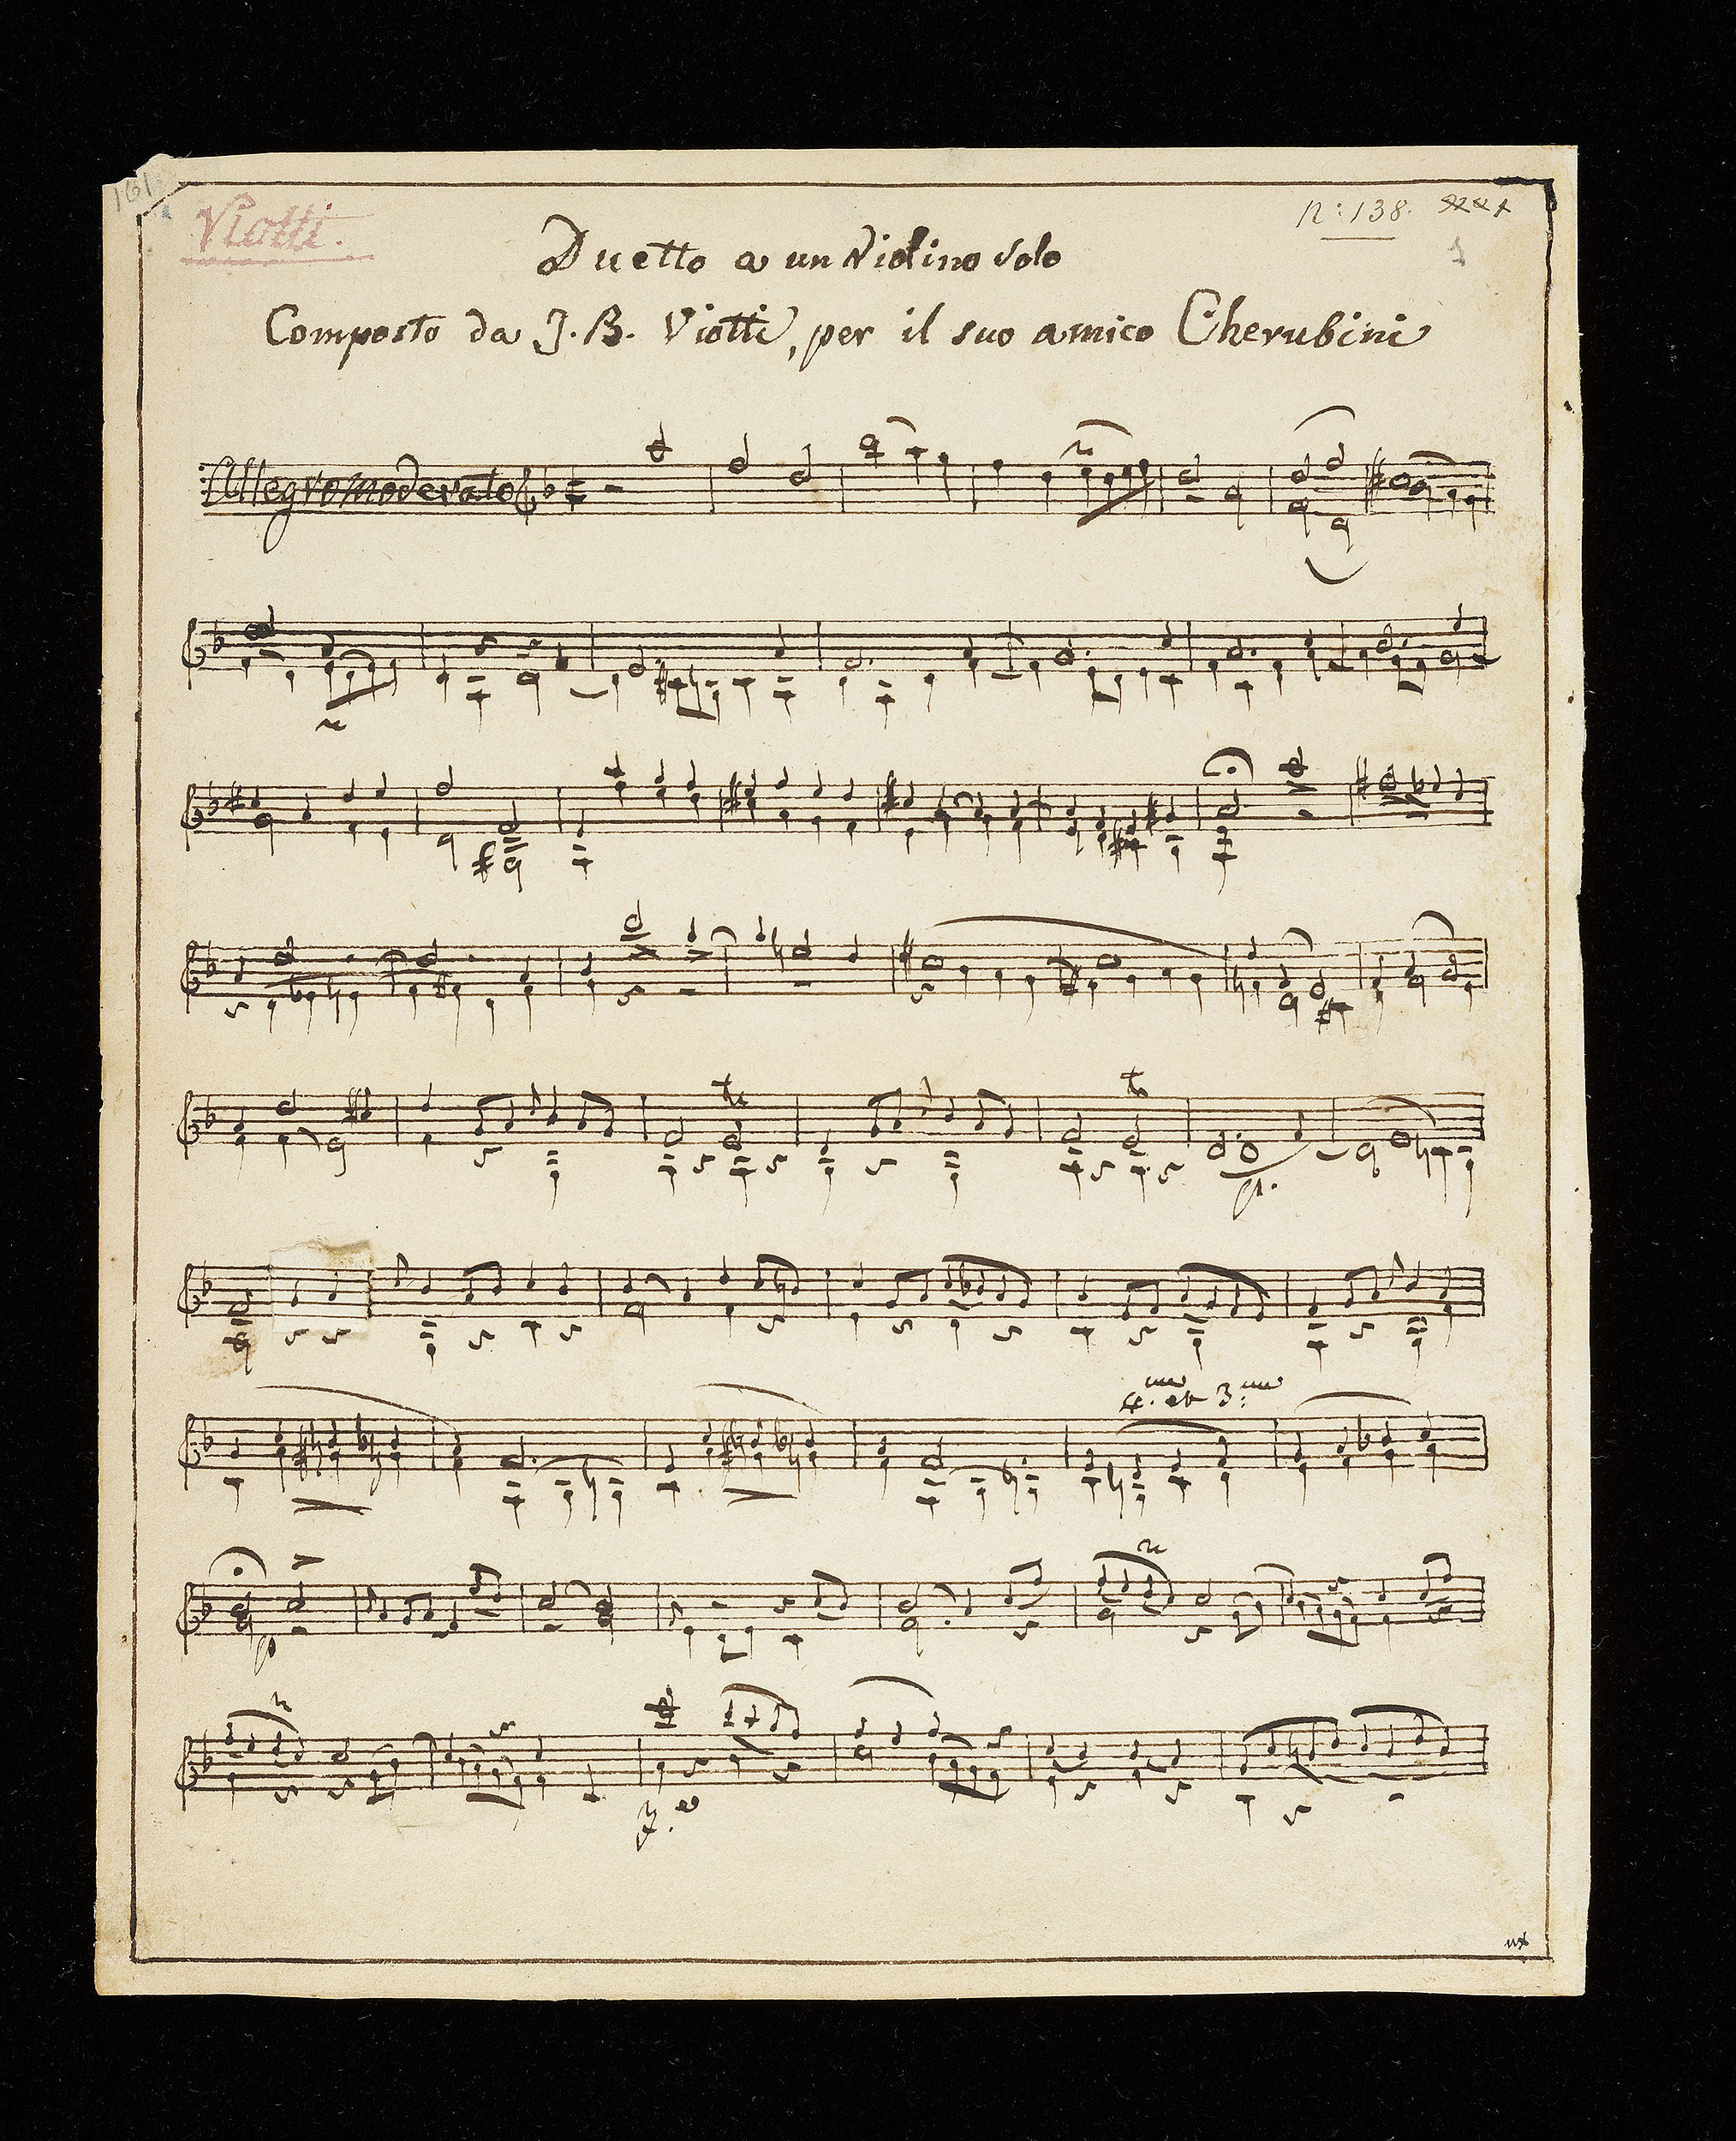 161
Viotti.
n: 138.
1
Duetto a un Violino Solo
Composto da J. B. Viotti, per il suo amico Cherubini
Allegro moderato
p.
4. et 3:
p